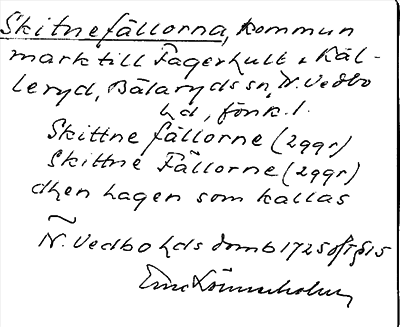 Skitnefällorna, kommun
mark till Fagerhult o Käl-
leryd, Bälaryds sn, N. Vedbo
hd, Jönk. l.
Skittne fällorne (2ggr)
Skittne Fällorne (2ggr)
dhen hagen som kallas
~
N. Vedbo hds domb 1725